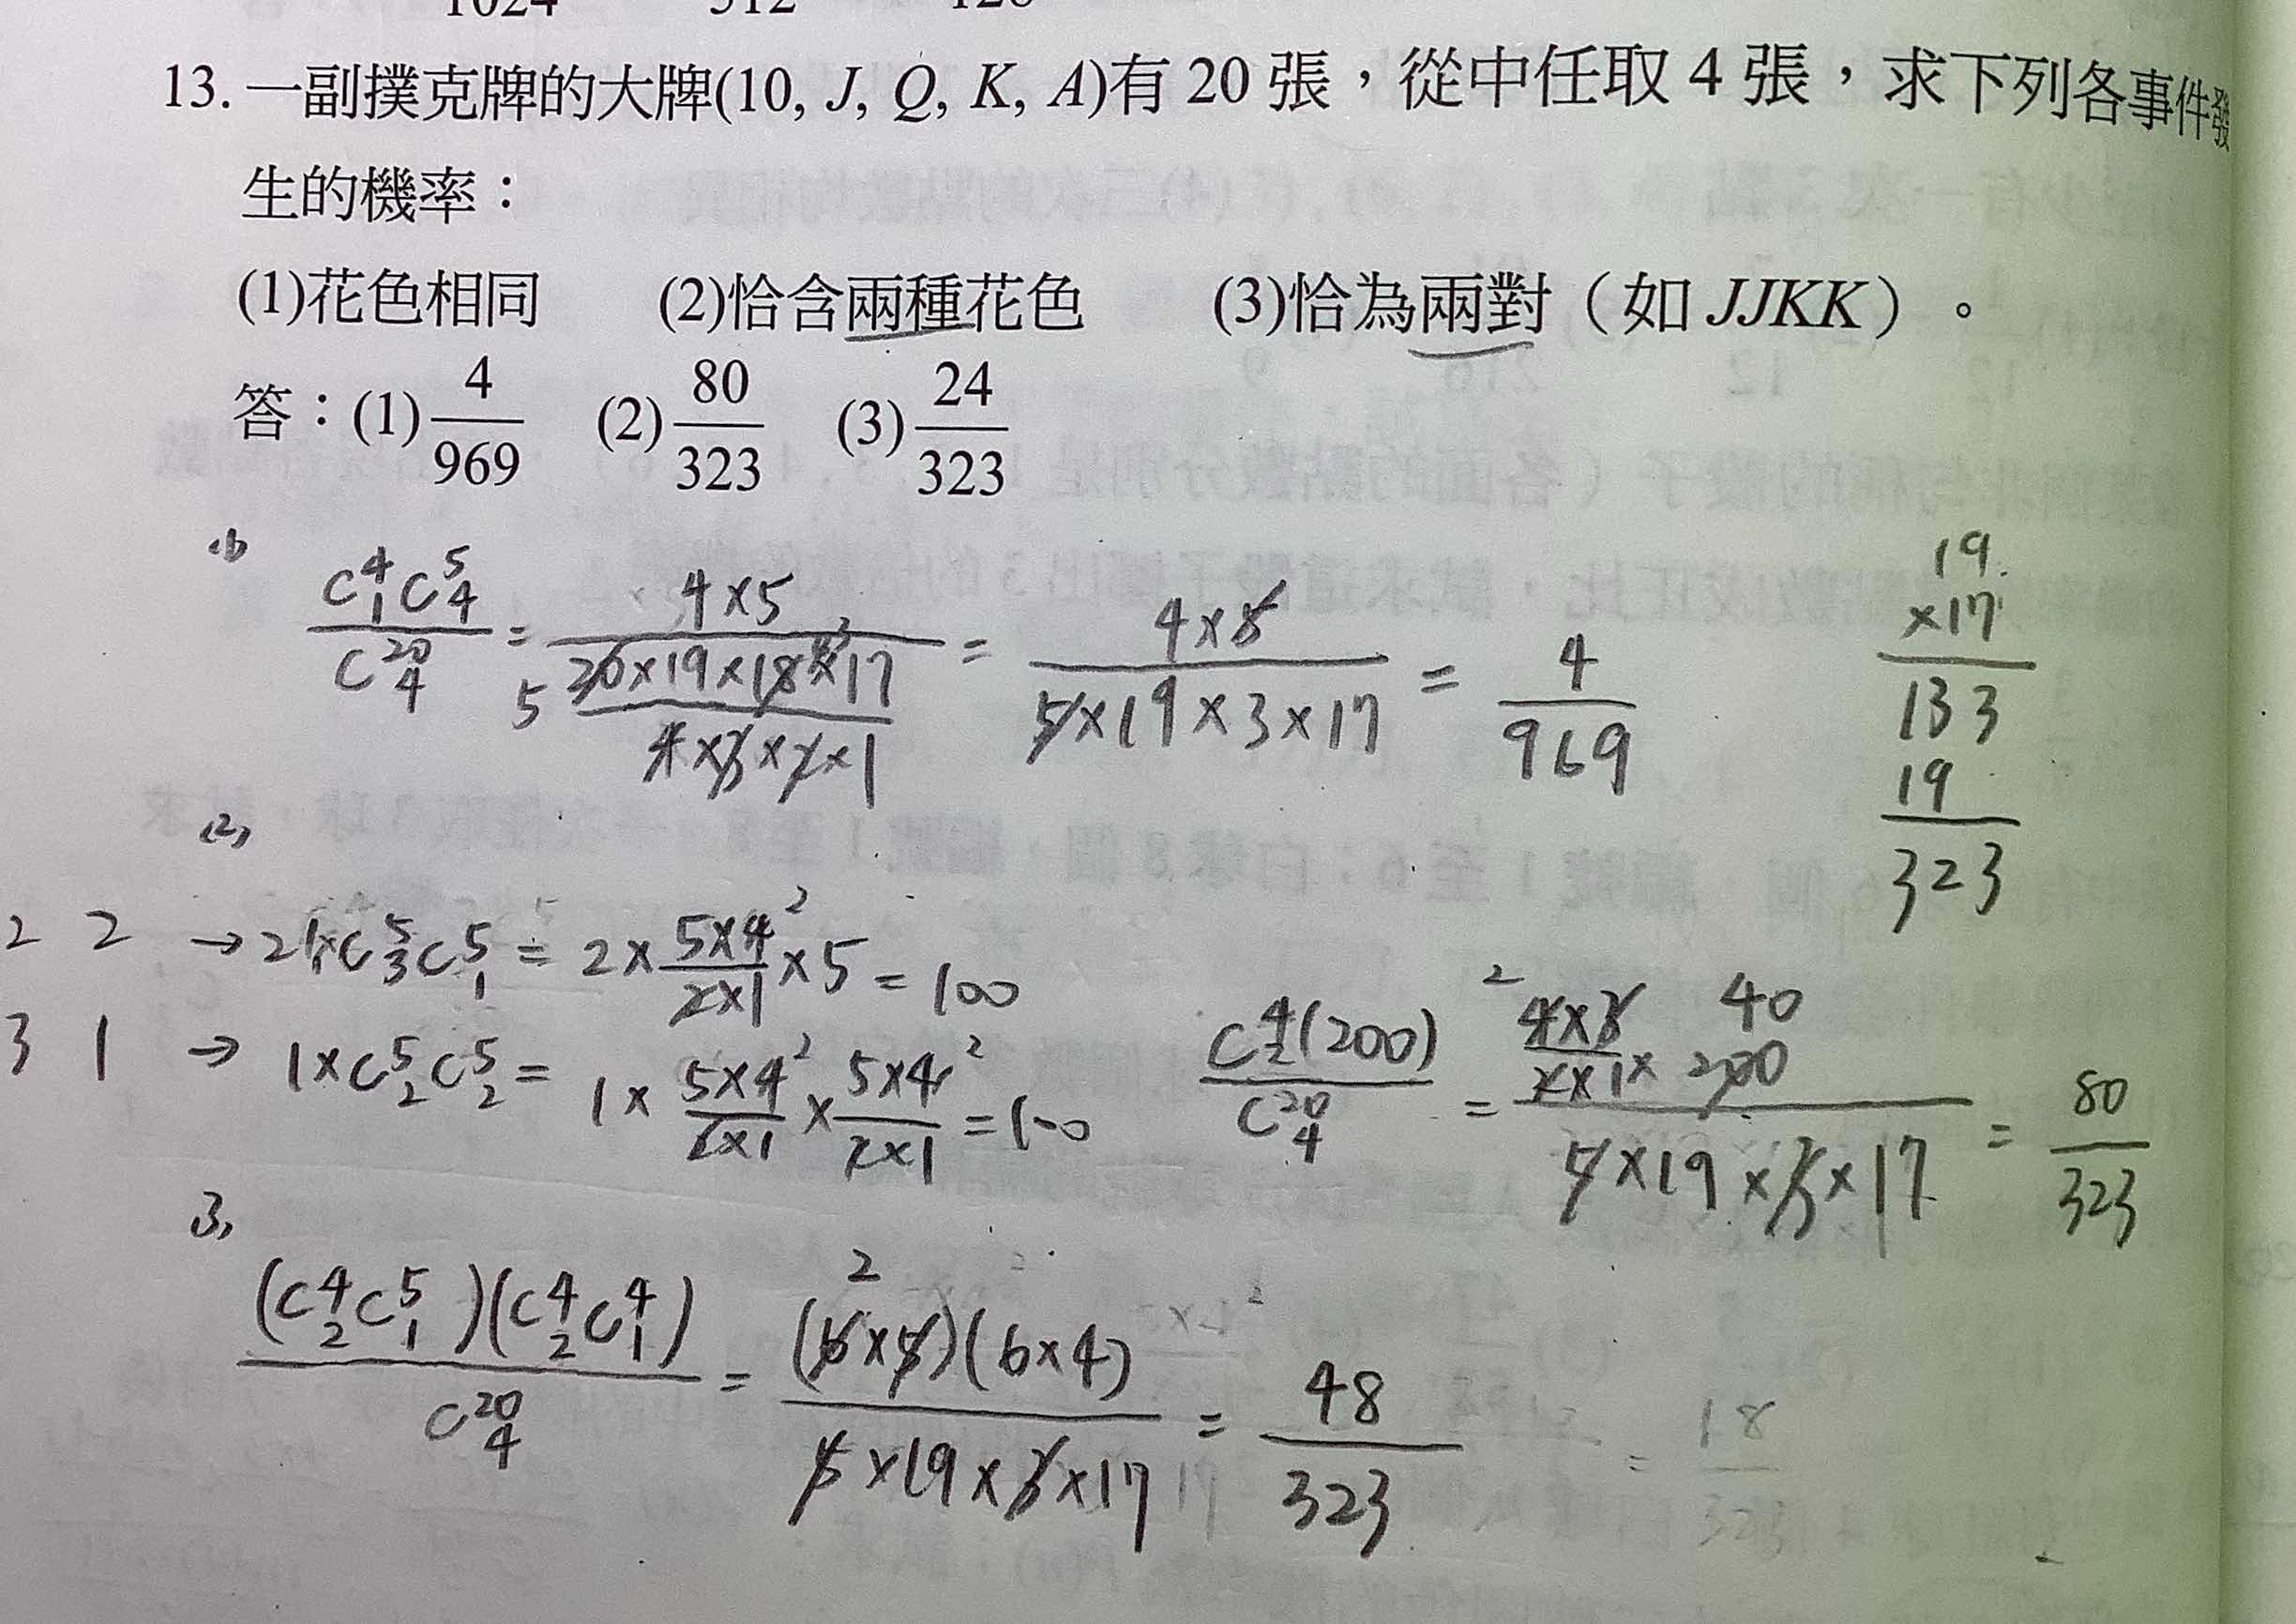 13. 一副撲克牌的大牌(10, J, Q, K, A)有 20 張，從中任取 4 張，求下列各事件發
生的機率：
(1)花色相同 (2)恰含兩種花色 (3)恰為兩對（如 JJKK）。
答：(1) 4/969 (2) 80/323 (3) 24/323
(1)
C^4_1 C^5_4 / C^20_4 = 4×5 / (20×19×18×17 / 4×3×2×1) = 4×5 / 5×19×3×17 = 4/969
19
×17
133
19
323
(2)
2 2 → 2×C^5_3 C^5_1 = 2 × 5×4/2×1 × 5 = 100
3 1 → 1×C^5_2 C^5_2 = 1 × 5×4/2×1 × 5×4/2×1 = 100
C^4_2 (200) / C^20_4 = 4×3/2×1 × 200 / 5×19×3×17 = 80/323
(3)
(C^4_2 C^5_1)(C^4_2 C^4_1) / C^20_4 = (6×5)(6×4) / 5×19×3×17 = 48/323